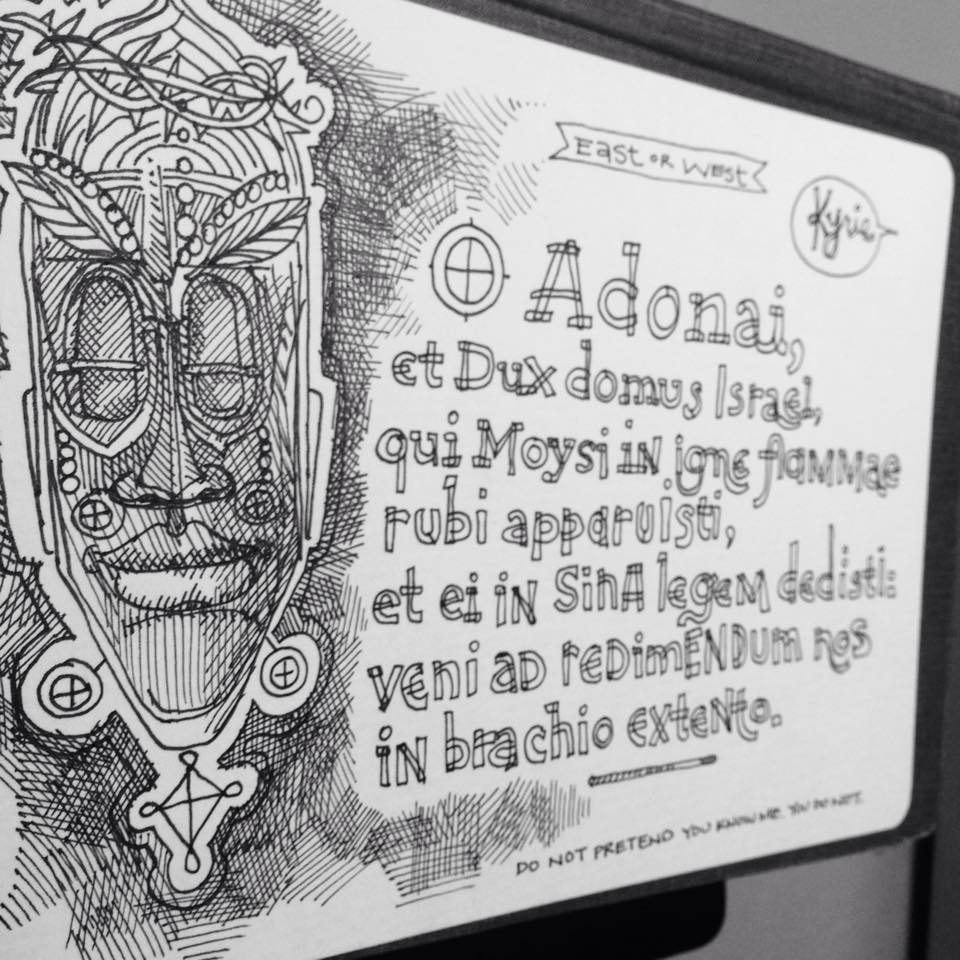 East or West
Kyrie
O Adonai,
et Dux domus Israel,
qui Moysi in igne flammae
rubi apparuisti,
et ei in SinA legem dedisti:
veni ad REDimENDum nos
in brachio extento.
DO NOT PRETEND YOU KNOW ME. YOU DO NOT.